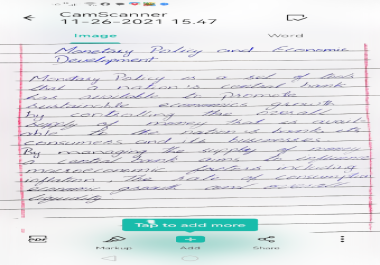 CamScanner
11-26-2021 15.47
Image Word
Monetary Policy and Economic
Development
Monetary Policy is a set of tools
that a nation's central bank
has available to promote
sustainable economic growth
by controlling the overall
supply of money that is avail-
able to the nation's bank its
consumers and its businesses.
By managing the supply of money
a central bank aims to influence
macroeconomic factors including
inflation the rate of consumption
economic growth and overall
liquidity
Tap to add more
PDF Markup Add Share